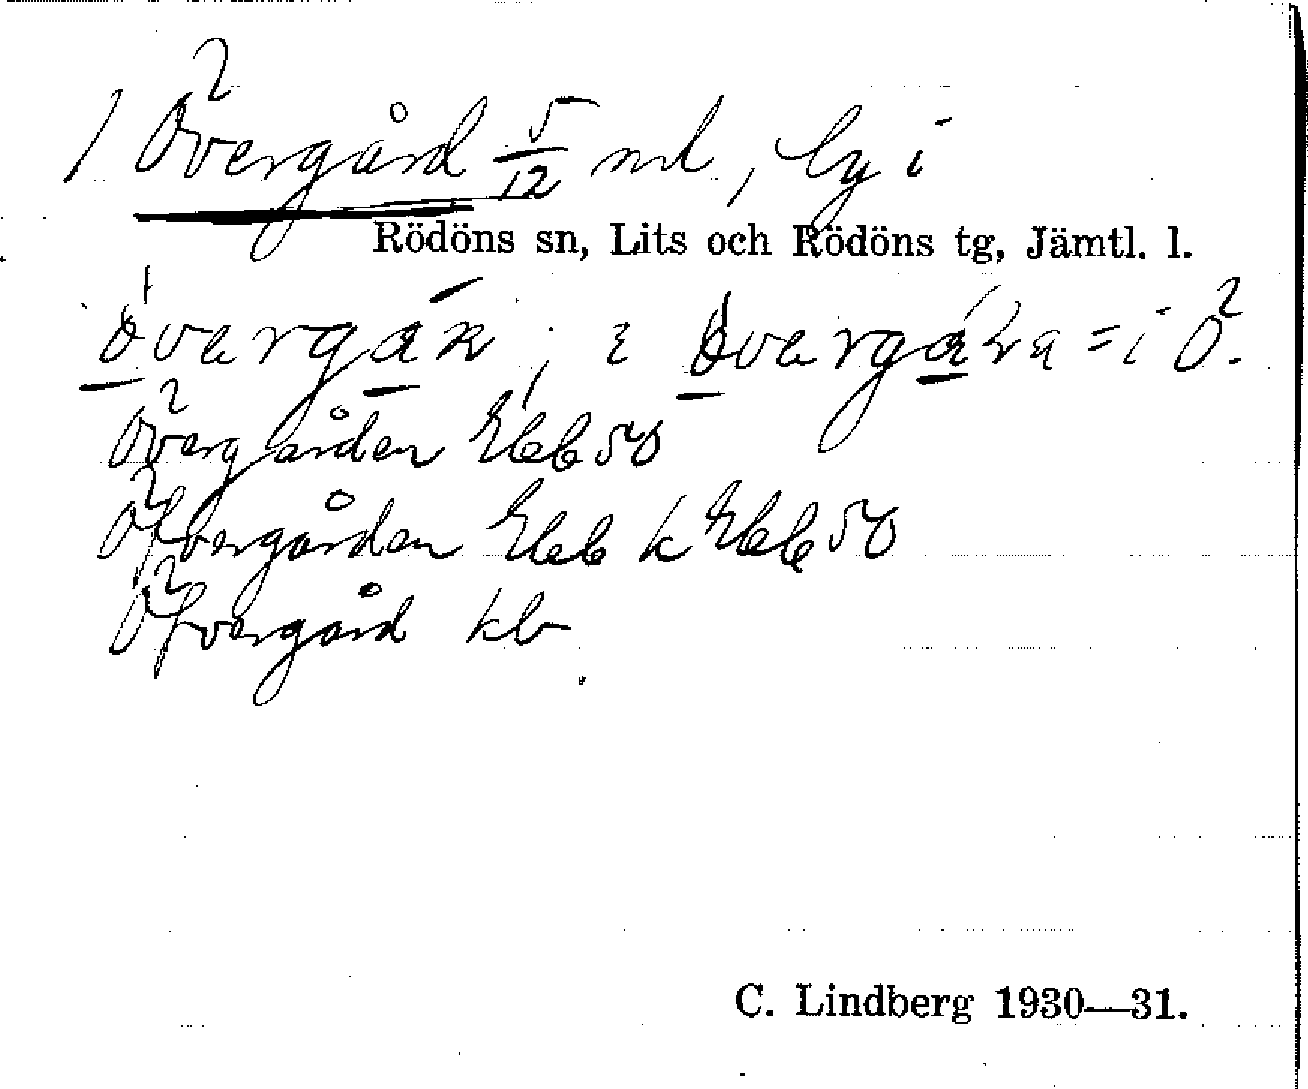 1 Övergård 5/12 mtl, by i
Rödöns sn, Lits och Rödöns tg, Jämtl. l.
i = i Ö.
Övergården Ebb 50
Öfvergården Ebb k Ebb 50
Öfvergård kb
C. Lindberg 1930—31.